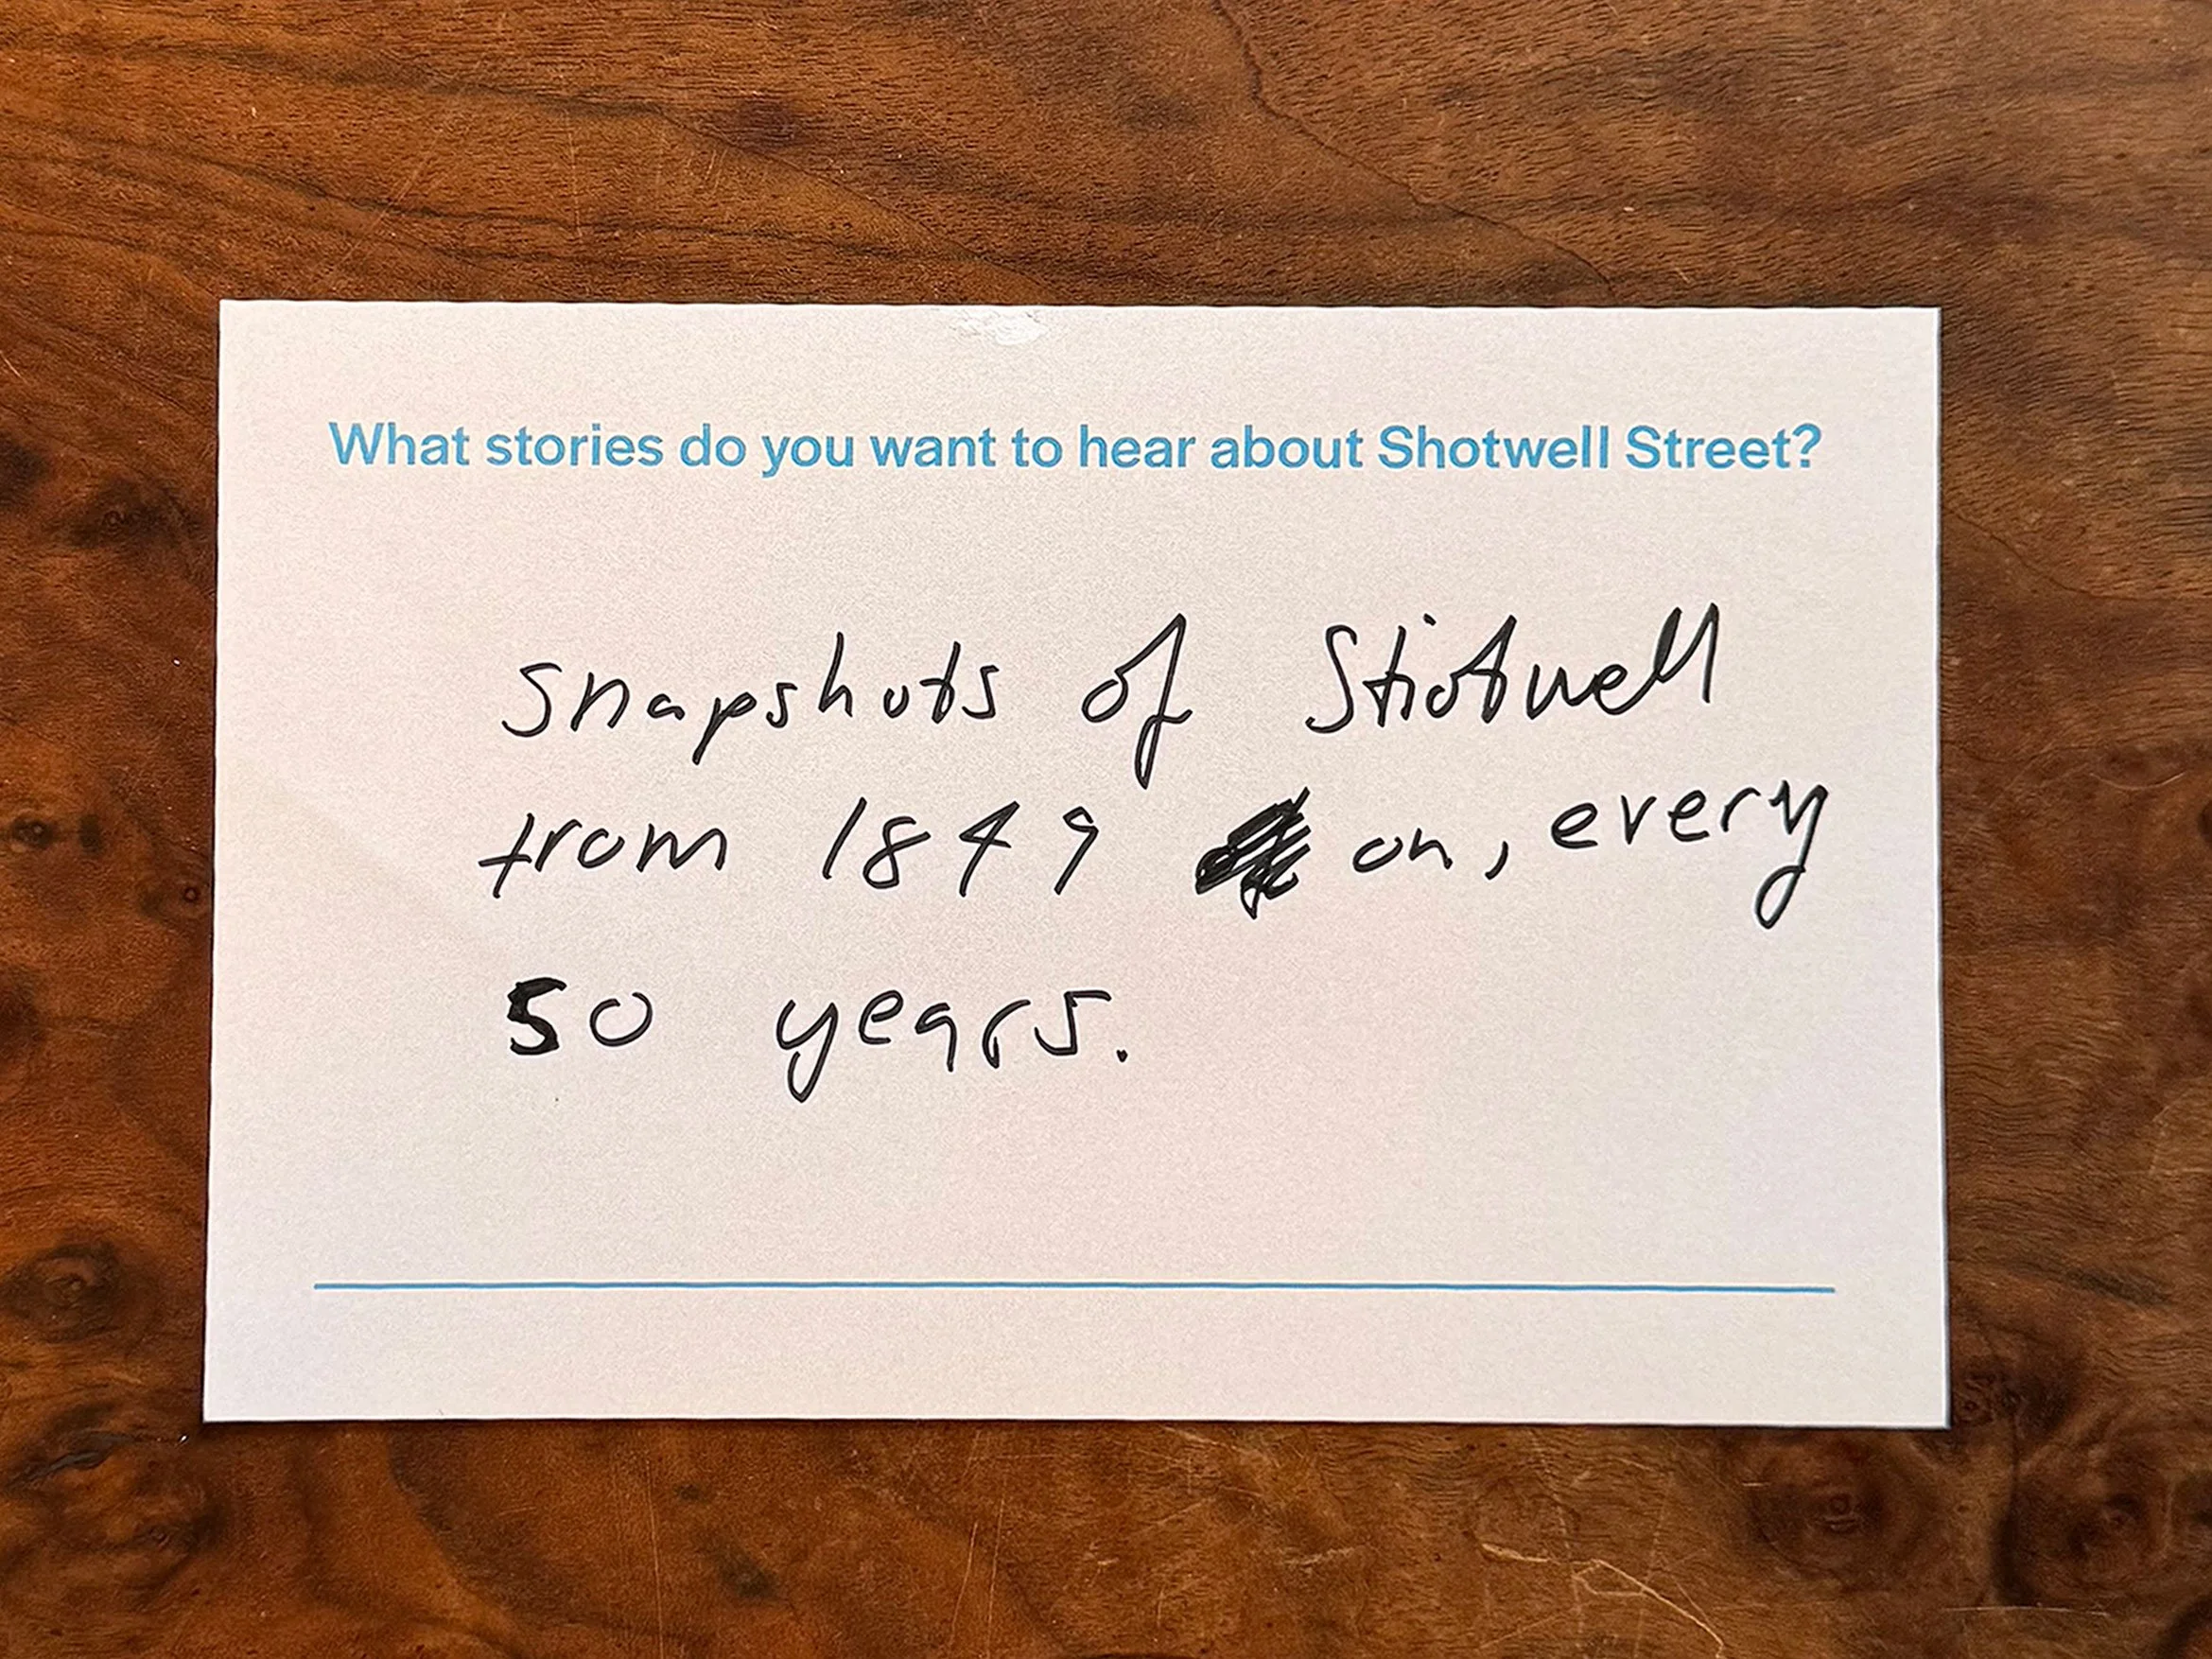 What stories do you want to hear about Shotwell Street?
snapshots of Shotwell
from 1849 on, every
50 years.